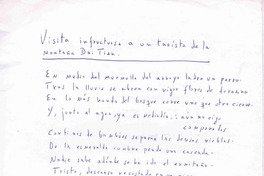 Visita infructuosa a un taoísta de la
montaña Dai Tian.
En medio del murmullo del arroyo ladra un perro.
Tras la lluvia se abren con vigor flores de durazno
En lo más hondo del bosque corre uno que otro ciervo.
Y, junto al agua ya es mediodía: aún no oigo
campanadas
Cortinas de bambúes separan las densas nieblas.
De la esmeralda cumbre pende una cascada.
Nadie sabe adónde se ha ido el ermitaño.
Triste, descanso recostado en un